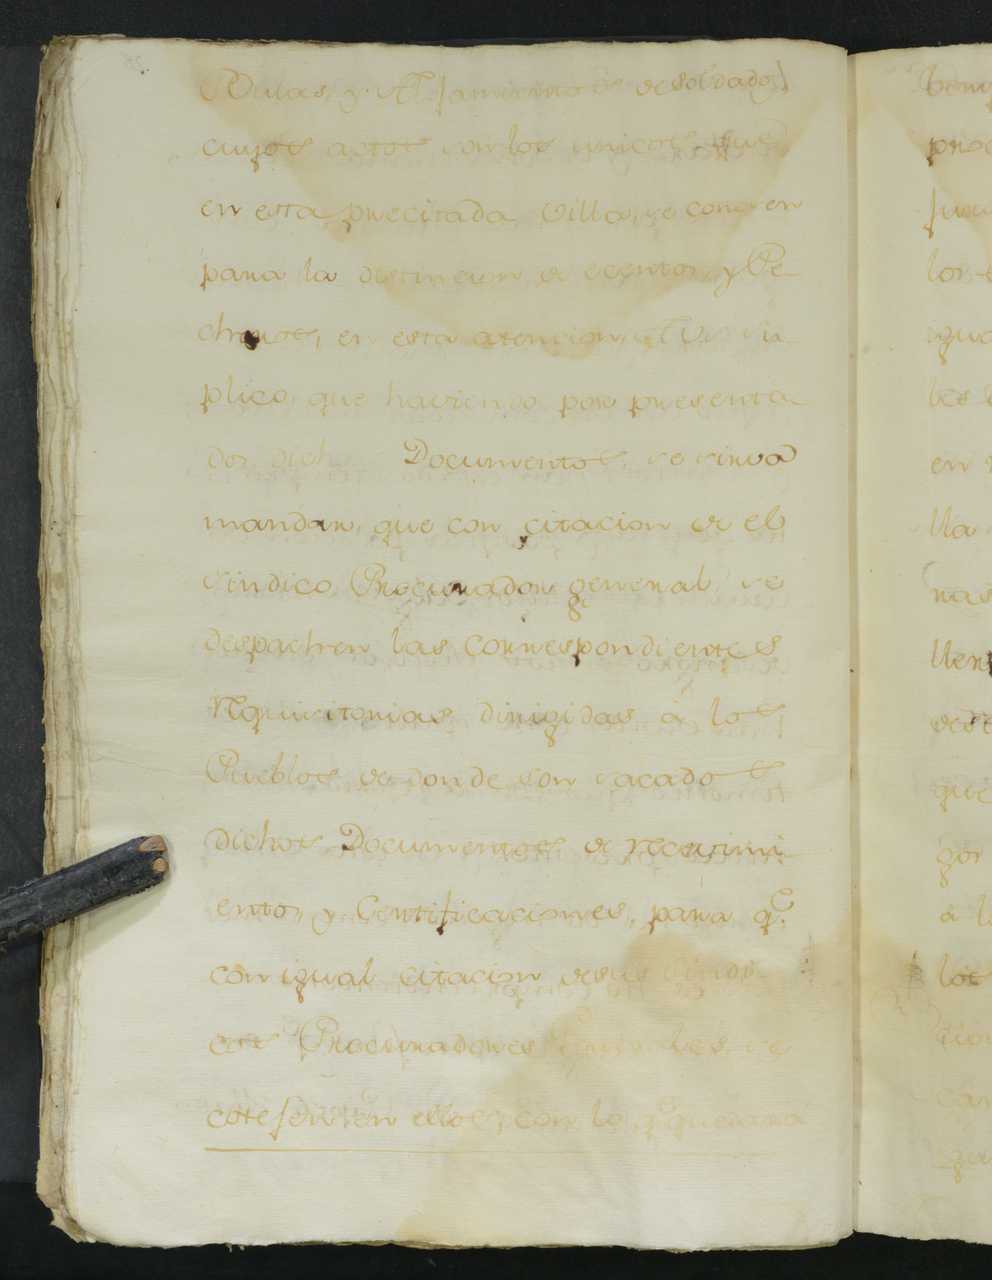 Bulas, y Alojamiento de soldados)
cuyos actos son los unicos que
en esta precitada Villa, se conocen
para la distincion de esentos, y Pe-
cheros, en esta atencion, a Vm. su-
plico, que haviendo por presenta
dos, dichos Documentos, se sirva
mandar, que con citacion de el
Sindico Procurador general, se
despachen las correspondientes
Requisitorias dirigidas, à los
Pueblos de donde son sacados
dichos Documentos de recivimi-
ento, y Certificaciones, para q.e
con igual citacion de sus Sindi-
cos Procuradores generales, se
cotejen en ellos, con lo q.e
lor
igua
les
en
lla
nas
que
por
à l
los